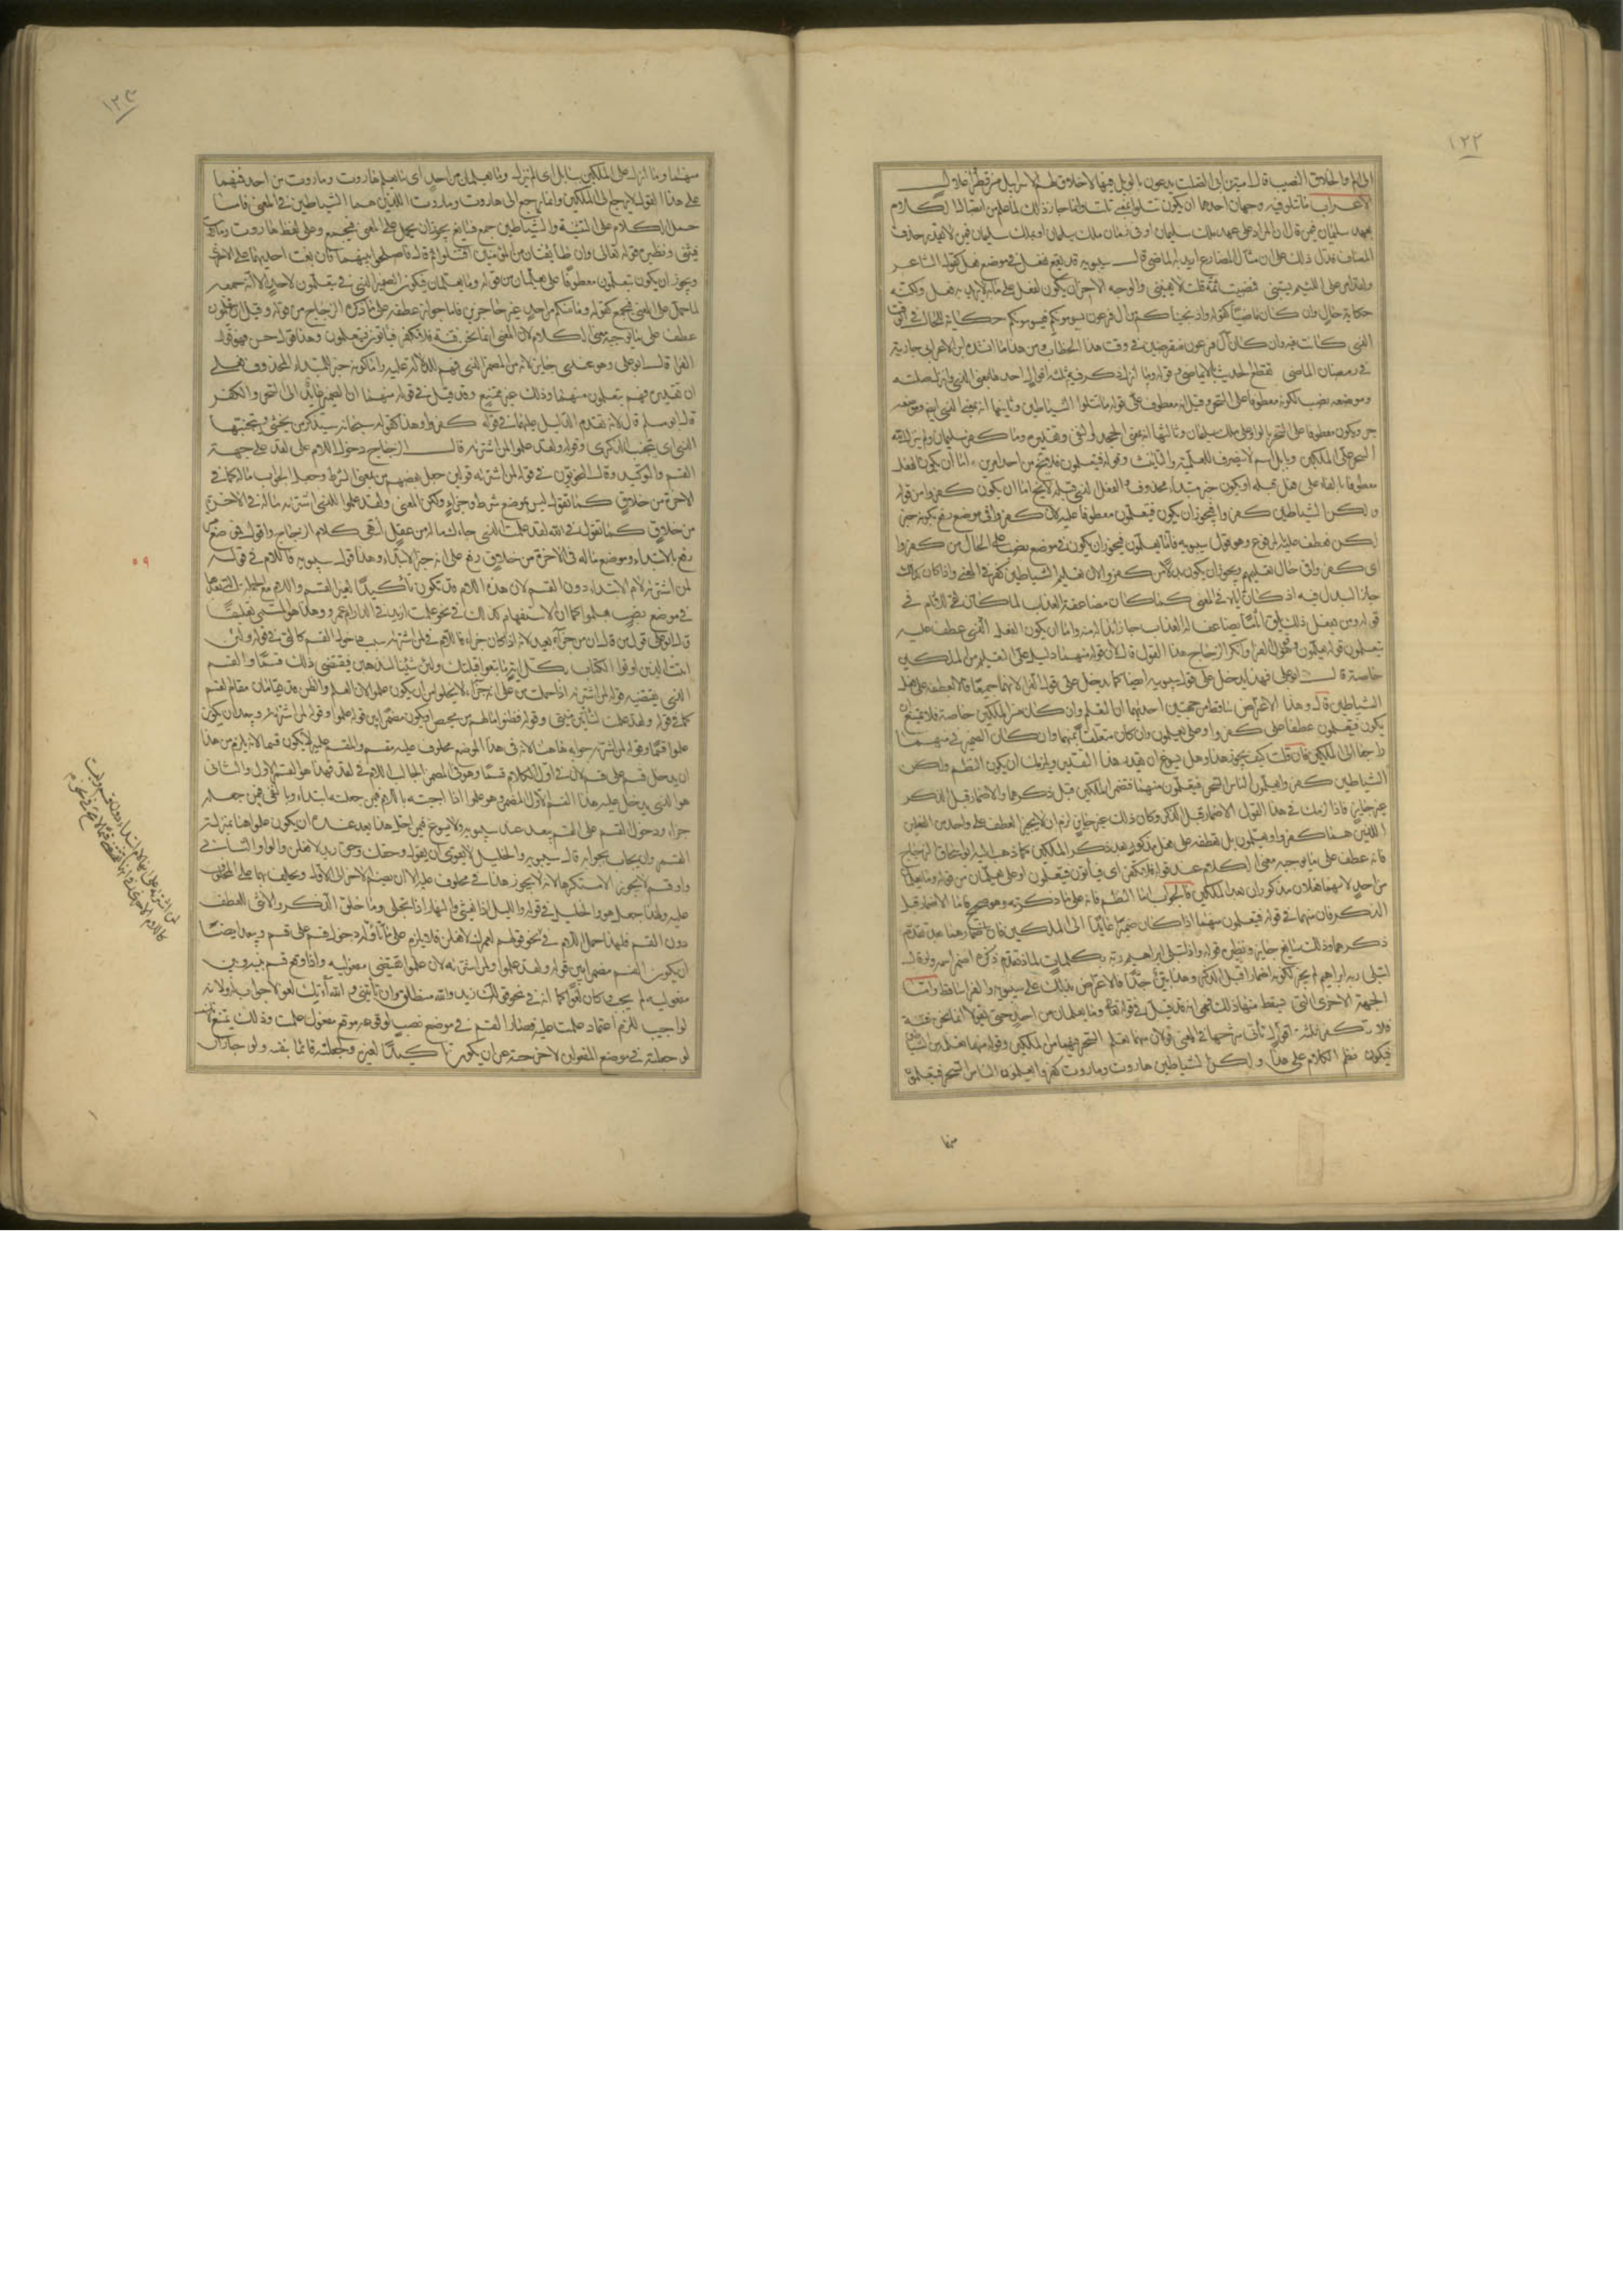 ١٢٢
الى المال والخلاق النصيب قال امية بن ابي الصلت يدعون بالويل فيها لا خلاق لهم الا سرابيل من قطر واغلال
الاعراب ما تتلو فيه وجهان احدهما ان يكون تتلو بمعنى تلت وانما جاز ذلك لما علم من اتصال الكلام
بعهد سليمان فيمن قال ان المراد على عهد ملك سليمان او في زمان ملك سليمان او بملك سليمان فيمن لا يقدر حذف
المضاف فدل ذلك على ان مثال المضارع اريد به الماضي قال سيبويه قد يقع يفعل في موضع فعل كقول الشاعر
ولقد امر على اللئيم يسبني فمضيت ثمة قلت لا يعنيني والوجه الاخر ان يكون يفعل على بابه لا يريد به فعل ولكنه
حكاية حال وان كان ماضيا كقوله واذ نجيناكم من آل فرعون يسومونكم فيسومونكم حكاية للحال في الوقت
الذي كانت فيه وان كان آل فرعون منقرضين في وقت هذا الخطاب ومن هذا ما انشده ابن الاعرابي جارية
في رمضان الماضي تقطع الحديث بالايماض وقوله وما انزل ذكر فيه ثلثة اقوال احدها بمعنى الذي وانزل صلته
وموضعه نصب لكونه معطوفا على السحر وقيل انه معطوف على قوله ما تتلوا الشياطين وثانيها انه بمعنى الذي ايضا وموضعه
جر ويكون معطوفا بالواو على ملك سليمان وثالثها انه بمعنى الجحد والنفي وتقديره وما كفر سليمان ولم ينزل الله
السحر على الملكين وبابل اسم لا ينصرف للعلمية والتأنيث وقوله فيتعلمون فلا يخلو من احد امرين اما ان يكون فيه الفعل
معطوفا بالفاء على فعل قبله او يكون خبر مبتدأ محذوف والفعل الذي قبله لا يخلو اما ان يكون كفروا من قوله
ولكن الشياطين كفروا فيجوز ان يكون فيتعلمون معطوفا عليه لان كفروا في موضع رفع بكونه خبر
لكن فعطف عليه المرفوع وهو قول سيبويه فاما يعلمون فيجوز ان يكون في موضع نصب على الحال من كفروا
اي كفروا في حال تعليمهم ويجوز ان يكون بدلا من كفروا لان تعليم الشياطين كفر في المعنى واذا كان كذلك
جاز البدل فيه اذا كان اياه في المعنى كما كان مضاعفة العذاب لما كان لقي الاثام في
قوله ومن يفعل ذلك يلق اثاما يضاعف له العذاب جاز ابداله منه واما ان يكون الفعل الذي عطف عليه
يتعلمون قوله يعلمون وهو قول الفراء وانكر الزجاج هذا القول قال لان قوله منهما دليل على التعلم من الملكين
خاصة قال ابو علي فهذا يدخل على قول سيبويه ايضا كما يدخل على قول الفراء لانهما جميعا قالا بعطفه على فعل
الشياطين قال وهذا الاعتراض ساقط من جهتين احدهما ان التعلم وان كان من الملكين خاصة فلا يمتنع ان
يكون فيتعلمون عطفا على كفروا وعلى يعلمون وان كان متعلقا بهما وان كان الضمير في منهما
راجعا الى الملكين فان قلت كيف يجوز هذا وهل يسوغ ان يقدر هذا التقدير ويلزمك ان يكون النظم ولكن
الشياطين كفروا يعلمون الناس السحر فيتعلمون منهما فتضمر الملكين قبل ذكرهما والاضمار قبل الذكر
غير جايز فاذا لزمك في هذا القول الاضمار قبل الذكر وكان ذلك غير جايز لزم ان لا يجيز العطف على واحد من الفعلين
اللذين هما كفروا ويعلمون بل تعطفه على فعل مذكور بعد ذكر الملكين كما ذهب اليه ابو اسحاق الزجاج
فانه عطف على ما يوجبه معنى الكلام عند قوله فلا تكفر اي فيأبون فيتعلمون او على يعلمان من قوله وما يعلمان
من احد لانهما فعلان مذكوران بعد الملكين فالجواب اما النظم فانه على ما ذكرته وهو صحيح فاما الاضمار قبل
الذكر فان منهما في قوله فيتعلمون منهما اذا كان ضميرا عايدا الى الملكين فان اضمارهما بعد تقدم
ذكرهما وذلك سايغ جايز ونظيره قوله واذ ابتلى ابراهيم ربه بكلمات لما تقدم ذكره اضمر اسمه ولو قال
ابتلى ربه ابراهيم لم يجز لكونه اضمارا قبل الذكر وهذا بين جدا فالاعتراض بذلك على سيبويه والفراء ساقط واما
الجهة الاخرى التي يسقط منها ذلك فهي انه قد قيل في قوله تعالى وما يعلمان من احد حتى يقولا انما نحن فتنة
فلا تكفر ثلثة اقوال تأتي مشروحها في المعنى قولان منهما تعلم السحر فيهما من الملكين وقول منهما تعلمه من الشياطين
فيكون نظم الكلام على هذا ولكن الشياطين هاروت وماروت كفروا يعلمون الناس السحر فيتعلمون
منهما
١٢٣
منهما وما انزل على الملكين ببابل اي لم ينزل وما يعلمان من احد اي ما يعلم هاروت وماروت من احد فمنهما
على هذا القول لا يرجع الى الملكين وانما يرجع الى هاروت وماروت اللذين هما الشياطين في المعنى فاما
حمل الكلام على التثنية والشياطين جمع فسايغ يجوز ان يحمل على المعنى فيجمع وعلى لفظ هاروت وماروت
فيثنى ونظيره قوله تعالى وان طائفتان من المؤمنين اقتتلوا ثم قال فاصلحوا بينهما فان بغت احديهما على الاخرى
ويجوز ان يكون يتعلمون معطوفا على يعلمان من قوله وما يعلمان فيكون الضمير الذي في يتعلمون لاحد الا انه جمع
لما حمل على المعنى فجمع كقوله وما منكم من احد عنه حاجزين فاما جواز عطفه على ما ذكره الزجاج من قوله وقيل ان يتعلمون
عطف على ما يوجبه معنى الكلام لان المعنى انما نحن فتنة فلا تكفر فيأبون فيتعلمون وهذا قول حسن فهو قول
الفراء قال ابو علي وهو عندي جايز لانه من المضمر الذي فهم للدلالة عليه واما كونه خبر المبتداء المحذوف فعلى
ان تقديره فهم يتعلمون منهما وذلك غير ممتنع وقد قيل في قوله منهما ان الضمير عايد الى السحر والكفر
قاله ابو مسلم قال لانه تقدم الدليل عليهما في قوله كفروا وهذا كقوله سبحانه سيذكر من يخشى ويتجنبها
الاشقى اي يتجنب الذكرى وقوله ولقد علموا لمن اشتريه قال الزجاج دخول اللام على لقد على جهة
القسم والتوكيد وقال النحويون في قوله لمن اشتريه قولين جعل بعضهم من بمعنى الشرط وجعل الجواب ماله في
الاخرة من خلاق كما تقول ليس بموضع شرط وجزاء ولكن المعنى ولقد علموا للذي اشتريه ماله في الاخرة
من خلاق كما تقول والله لقد علمت للذي جاءك ماله من عقل انتهى كلام الزجاج واقول في موضع من
رفع بالابتداء وموضع ماله في الاخرة من خلاق رفع على انه خبر الابتداء وهذا قول سيبويه فاللام في قوله
لمن اشتريه لام الابتداء دون القسم لان هذه اللام قد تكون تأكيدا لغير القسم واللام مع الجملة التي بعدها
في موضع نصب بعلموا كما ان الاستفهام كذلك في نحو علمت ازيد في الدار ام عمرو وهذا هو المسمى تعليقا
قال ابو علي قول من قال ان من جزاء بعيد لانه اذا كان جزاء فاللام في لمن اشتريه سبب دخول القسم كالتي في قوله ولئن
اتيت الذين اوتوا الكتاب بكل آية ما تبعوا قبلتك ولئن شئنا لنذهبن فيقتضي ذلك قسما والقسم
الذي يقتضيه قوله لمن اشتريه اذا حملت من على انه جزاء لا يخلو من ان يكون علموا لان العلم والظن قد يقامان مقام القسم
كما في قوله ولقد علمت لتأتين منيتي وقوله فظنوا ما لهم من محيص او يكون مضمرا بين قوله علموا وقوله لمن اشتريه ويبعد ان يكون
علموا قسما وقوله لمن اشتريه جوابه هاهنا لانه في هذا الموضع محلوف عليه مقسم والمقسم عليه لا يكون قسما لانه يلزم من هذا
ان يدخل قسم على قسم لان في اول الكلام قسما وهو في المضمر الجالب اللام في لقد فهذا هو القسم الاول والثاني
هو الذي يدخل عليه هذا القسم الاول المضمر وهو علموا اذا اجبته باللام فيمن جعلته ابتداء وبالنفي فيمن جعله
جزاء ودخول القسم على القسم يبعد عند سيبويه ولا يسوغ فيمن اجل هذا بعد عنده ان يكون علموا هنا بمنزلة
القسم وان يجاب بجوابه قال سيبويه والخليل لا يقوى ان يقول وحقك وحق زيد لافعلن والواو الثانية
واو قسم لا يجوز الا مستكرها لانه لا يجوز هذا في محلوف عليه الا ان يضم الاخر الى الاول ويحلف بهما على المحلوف
عليه ولهذا جعل هو والخليل في قوله والليل اذا يغشى والنهار اذا تجلى وما خلق الذكر والانثى للعطف
دون القسم فلهذا حمل اللام في نحو قولهم لعمرك لافعلن فلا يلزم على ما تأوله دخول قسم على قسم ويبعد ايضا
ان يكون القسم مضمرا بين قوله ولقد علموا ولمن اشتريه لان علموا يقتضي مفعوليه واذا وقع قسم بينه وبين
مفعوليه لم يجب كان لغوا كما انه في نحو قولك زيد والله منطلق وان تأتني والله آتيك لغو لا جواب له ولانه
لو اجيب للزم اعتماد علمت عليه فصار القسم في موضع نصب لوقوعه موقع مفعول علمت وذلك يمتنع لانك
لو جعلته في موضع المفعولين لاخرجته من ان يكون تأكيدا لغيره ولجعلته قائما بنفسه ولو جاز ان